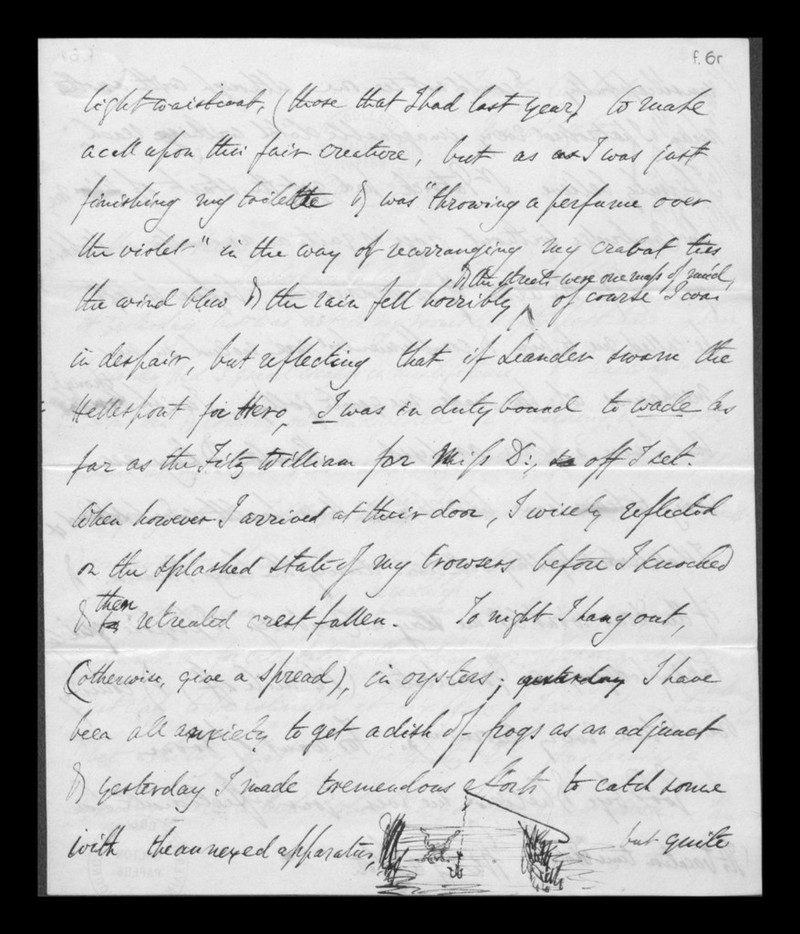 f. 6r
light waistcoat, (those that I had last year) to make
a call upon this fair creature, but as as I was just
finishing my toilette & was "throwing a perfume over
the violet" in the way of rearranging my cravat ties
& the streets were one mass of mud,
the wind blew & the rain fell horribly ∧ of course I was
in despair, but reflecting that if Leander swam the
Hellespont for Hero, I was in duty bound to wade as
far as the Fitz William for Miss D:, so off I set.
When however I arrived at their door, I wisely reflected
on the splashed state of my trowsers before I knocked
then
& retreated crest fallen. To night I hang out,
(otherwise, give a spread), in oysters; yesterday I have
been all anxiety to get a dish of frogs as an adjunct
& yesterday I made tremendous efforts to catch some
with the annexed apparatus, but quite